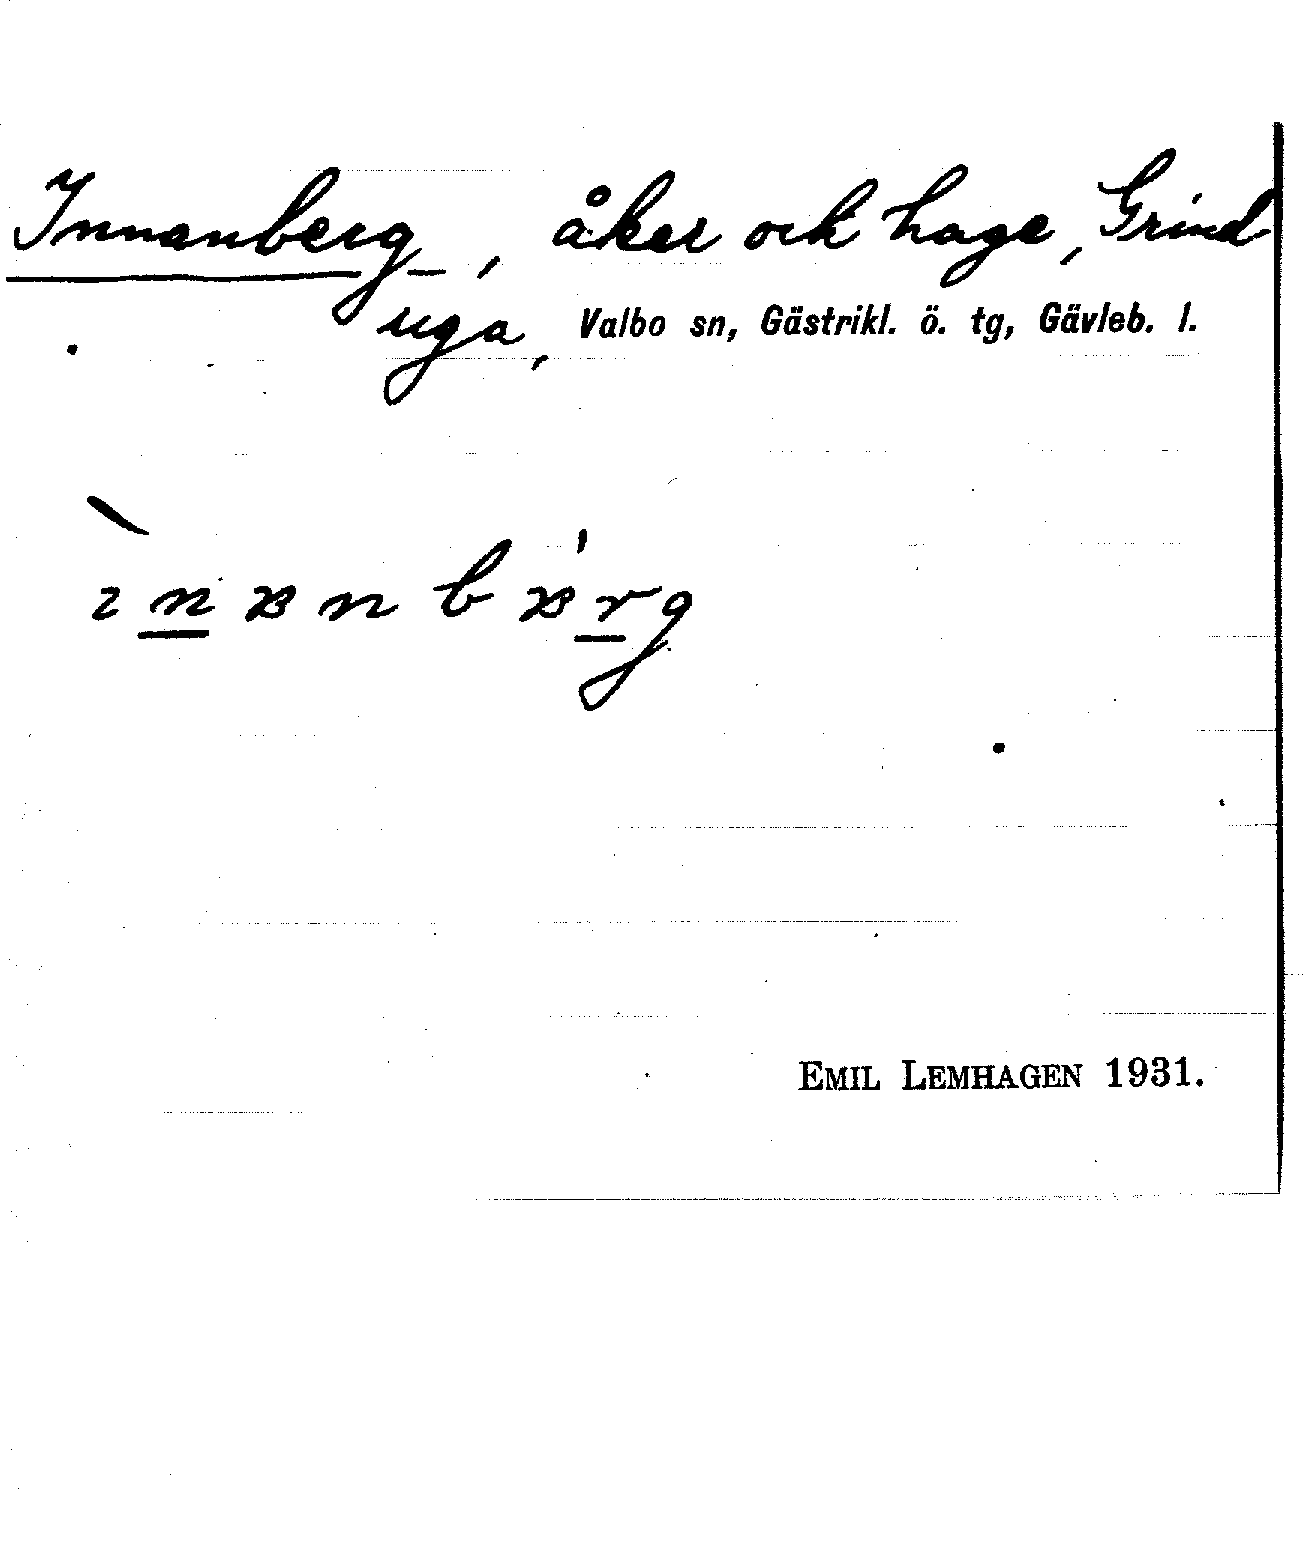 Innanberg, åker och hage, Grind
uga, Valbo sn, Gästrikl. ö. tg, Gävleb. l.
EMIL LEMHAGEN 1931.